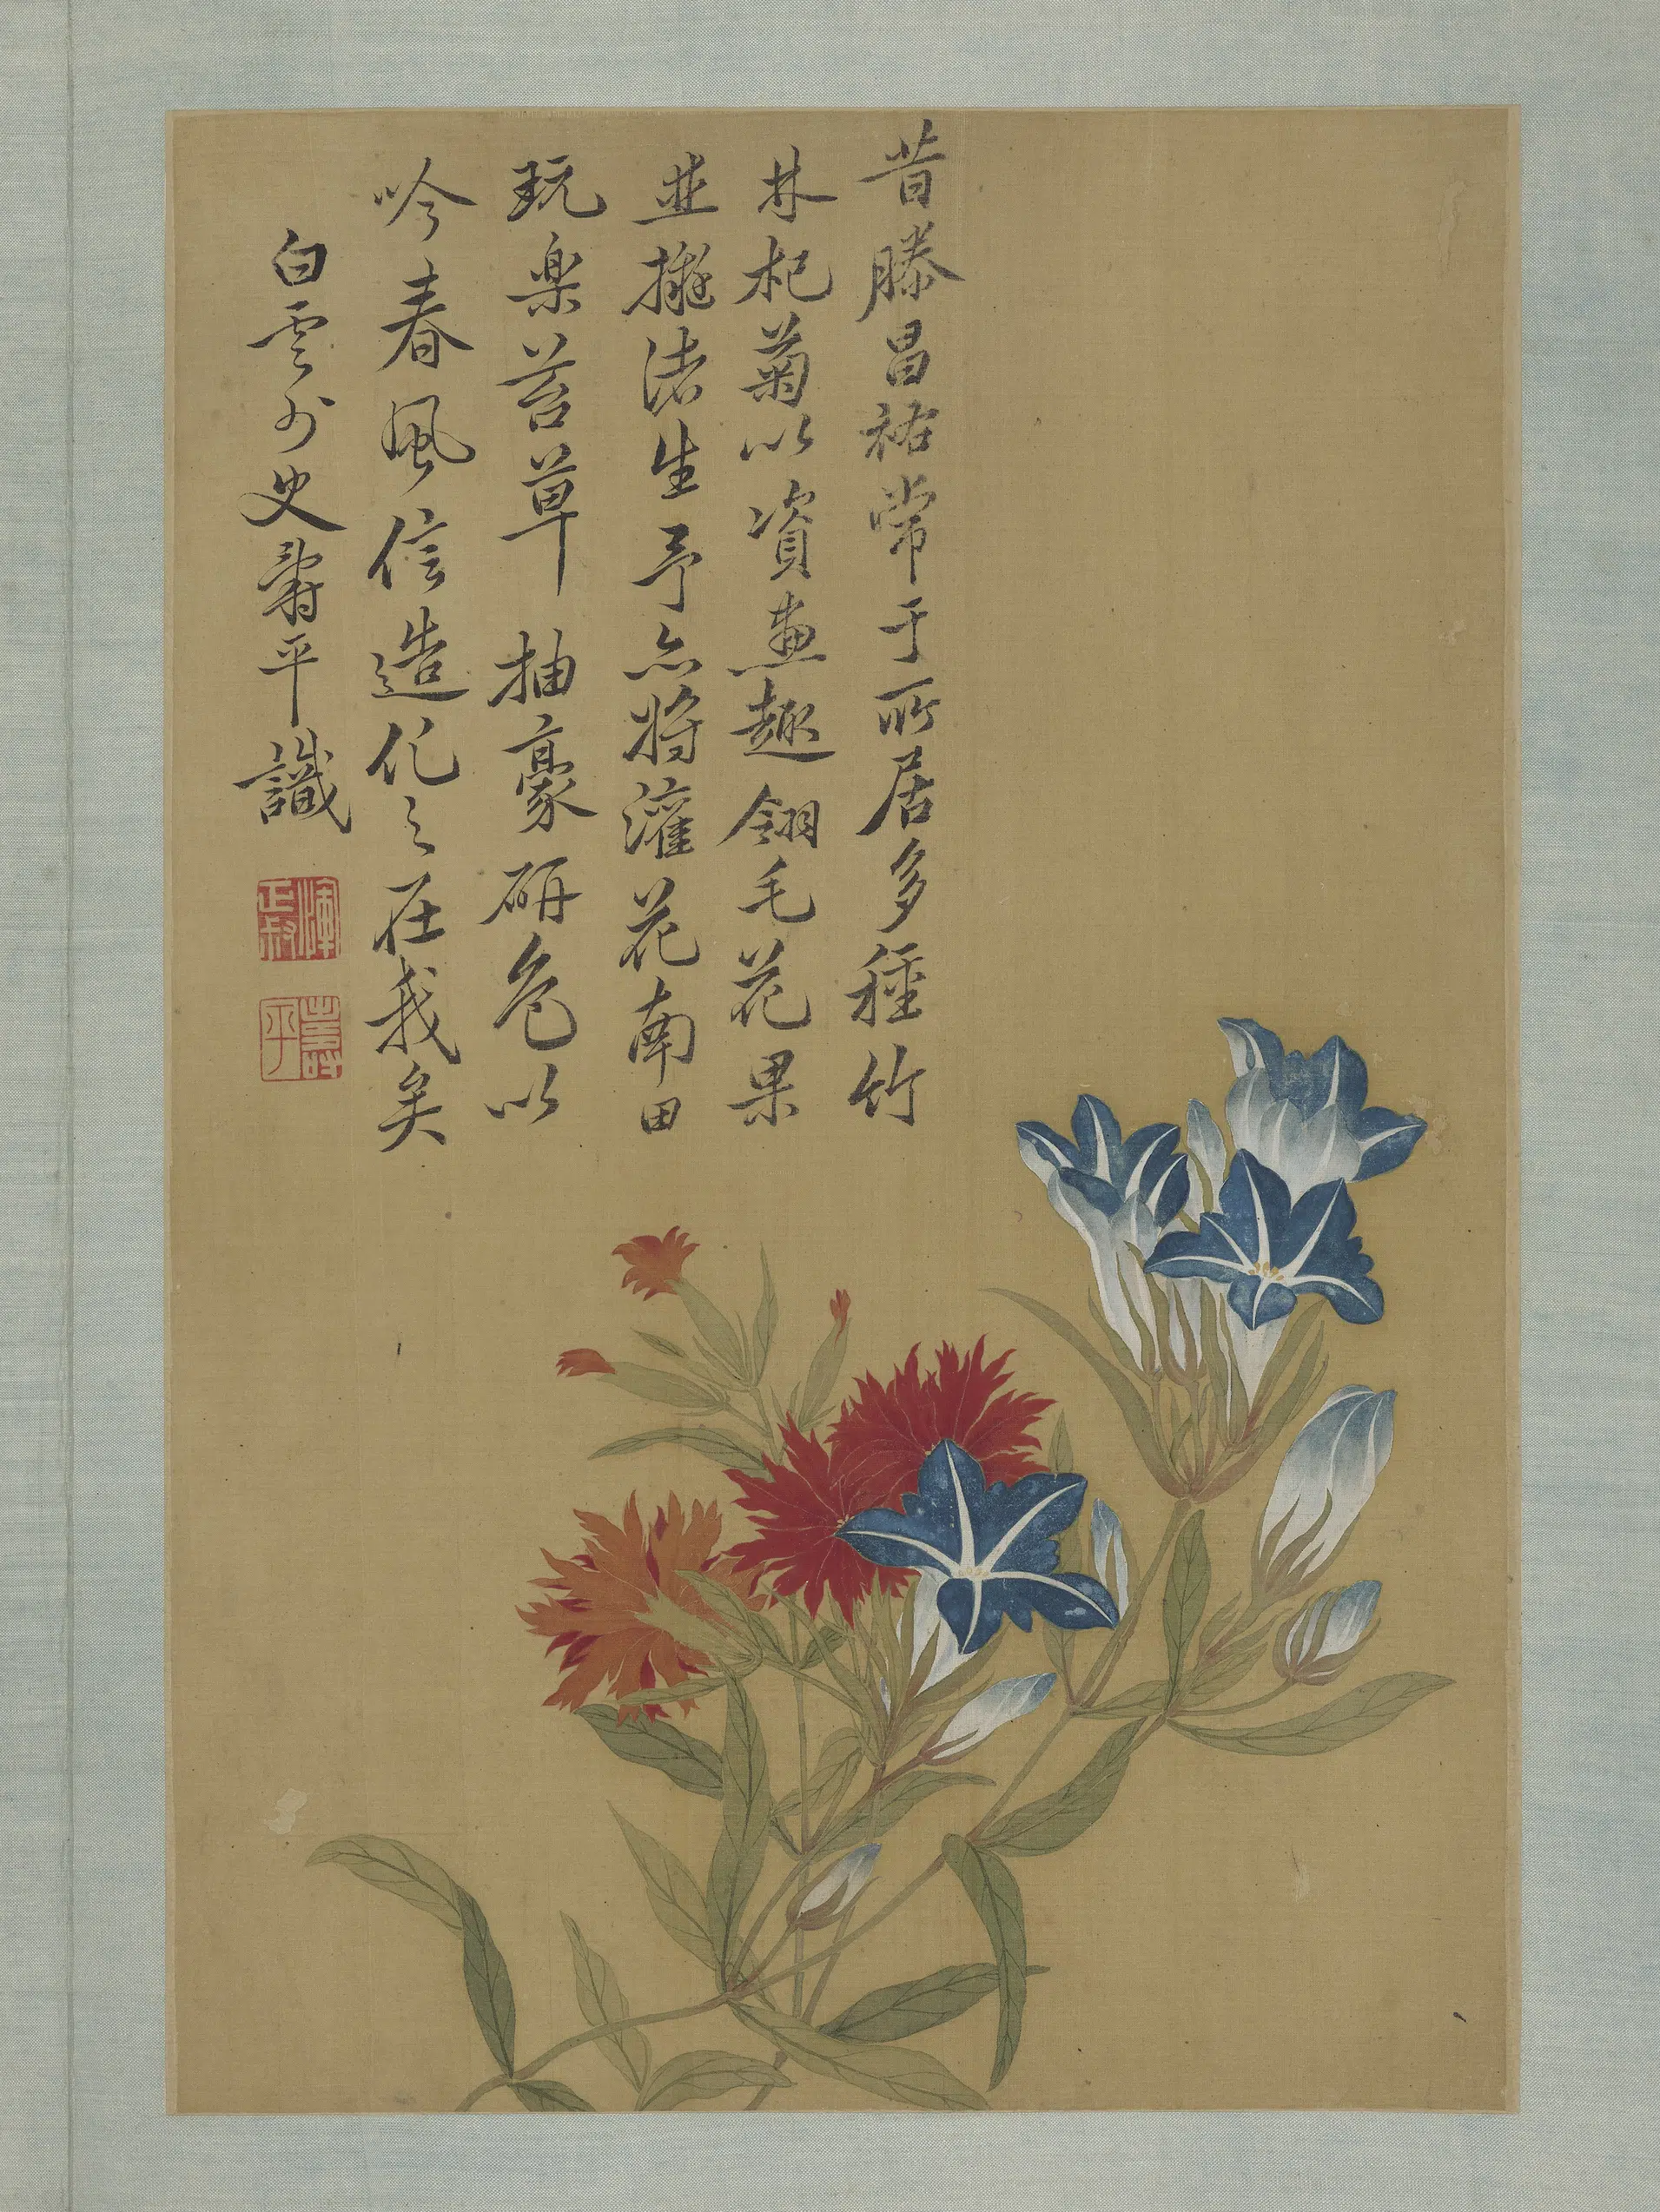 昔滕昌祐常于所居多種竹
林杞菊以資畫趣翎毛花果
並擬諸生予亦將灌花南田
玩樂苔草抽豪研色以
吟春風信造化之在我矣
白雲外史壽平識
惲正叔
壽平